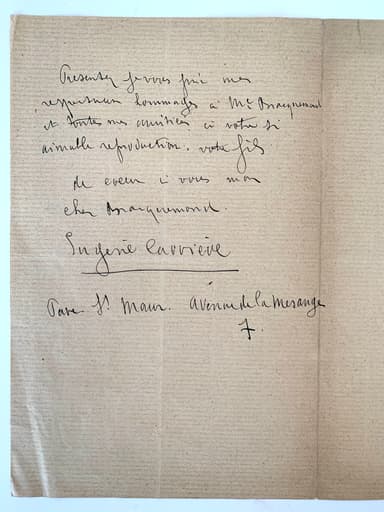 Présentez je vous prie mes
respectueux hommages à Me Bracquemond
et toutes mes amitiés à votre si
aimable reproduction. votre fils
de coeur à vous mon
cher Bracquemond.
Eugène Carrière
Parc St Maur. Avenue de la Mésange
7.